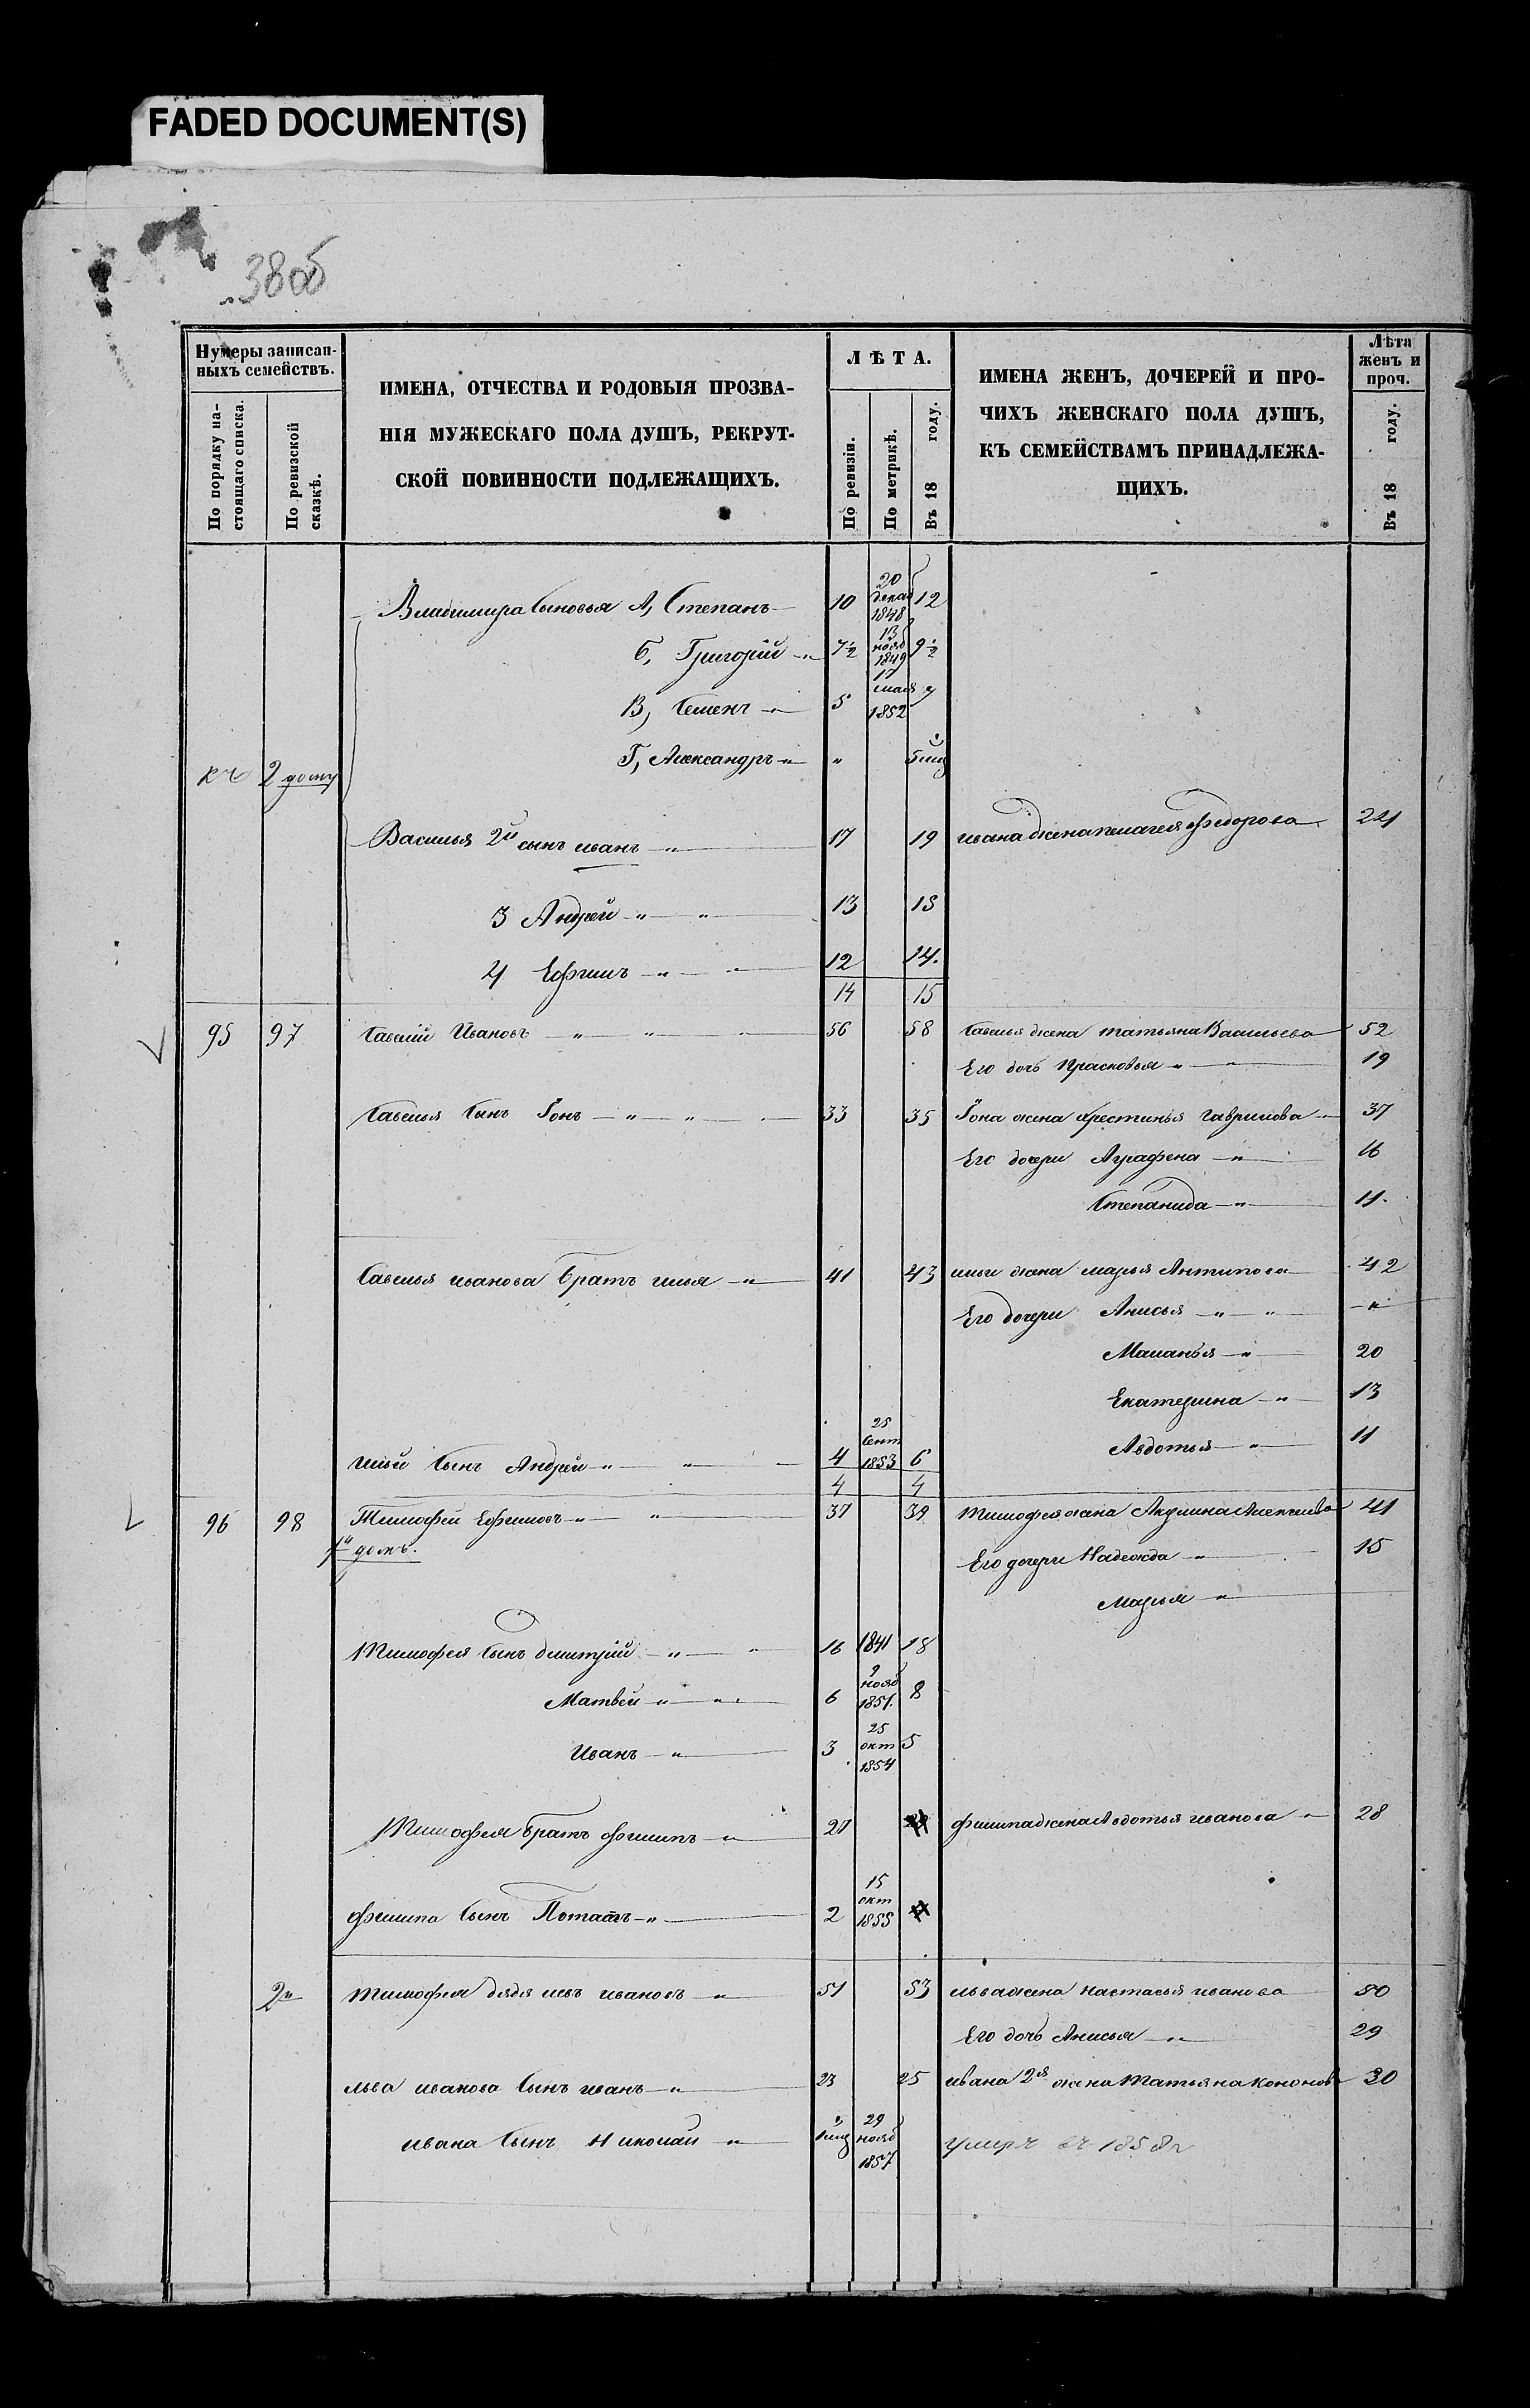 FADED DOCUMENT(S)
38об
Нумеры записан-
ныхъ семействъ.
По порядку на-
стоящаго списка.
По ревизской
сказкѣ.
ИМЕНА, ОТЧЕСТВА И РОДОВЫЯ ПРОЗВА-
НІЯ МУЖЕСКАГО ПОЛА ДУШЪ, РЕКРУТ-
СКОЙ ПОВИННОСТИ ПОДЛЕЖАЩИХЪ.
ЛѢТА.
По ревизіи.
По метрикѣ.
Въ 18 году.
ИМЕНА ЖЕНЪ, ДОЧЕРЕЙ И ПРО-
ЧИХЪ ЖЕНСКАГО ПОЛА ДУШЪ,
КЪ СЕМЕЙСТВАМЪ ПРИНАДЛЕЖА-
ЩИХЪ.
Лѣта
женъ и
проч.
Въ 18 году.
Владимира сыновья А, Степанъ 10 20 декаб 1848 12
Б, Григорій 7½ 13 нояб 1849 9½
В, Семенъ 5 17 мая 1852 7
Г, Александръ " 5 мц
къ 2 дому
Василья 2й сынъ иванъ 17 19 ивана жена пелагея Федорова 24
3 Андрей 13 15
4 Ефимъ 12 14.
14 15
95 97 Савелій Ивановъ 56 58 Савелья жена татьяна Васильева 52
Его дочь прасковья 19
Савелья Сынъ Іонъ 33 35 Іона жена крестинья гаврилова 37
Его дочери Аграфена 16
Степанида 11.
Савелья иванова братъ илья 41 43 ильи жена марья Антипова 42
Его дочери Анисья "
Маланья 20
Екатерина 13
Авдотья 11
ильи сынъ Андрей 4 25 Сент 1853 6
4 4
96 98 Тимофей Ефимовъ 37 39 тимофея жена Акулина Алексеева 41
1й домъ.
Его дочери Надежда 15
Марья
тимофея сынъ дмитрій 16 1841 18
Матвей 6 9 нояб 1851. 8
Иванъ 3 25 окт 1854 5
Тимофея братъ филипъ 27 филипа жена Авдотья иванова 28
филипа Сынъ Потапъ 2 15 окт 1855
2й тимофея дядя левъ ивановъ 51 53 льва жена настасья иванова 50
Его дочь Анисья 29
льва иванова сынъ иванъ 23 25 ивана 2я жена Татьяна кононова 30
ивана сынъ николай 1 мц 29 нояб 1857 умеръ въ 1858 г